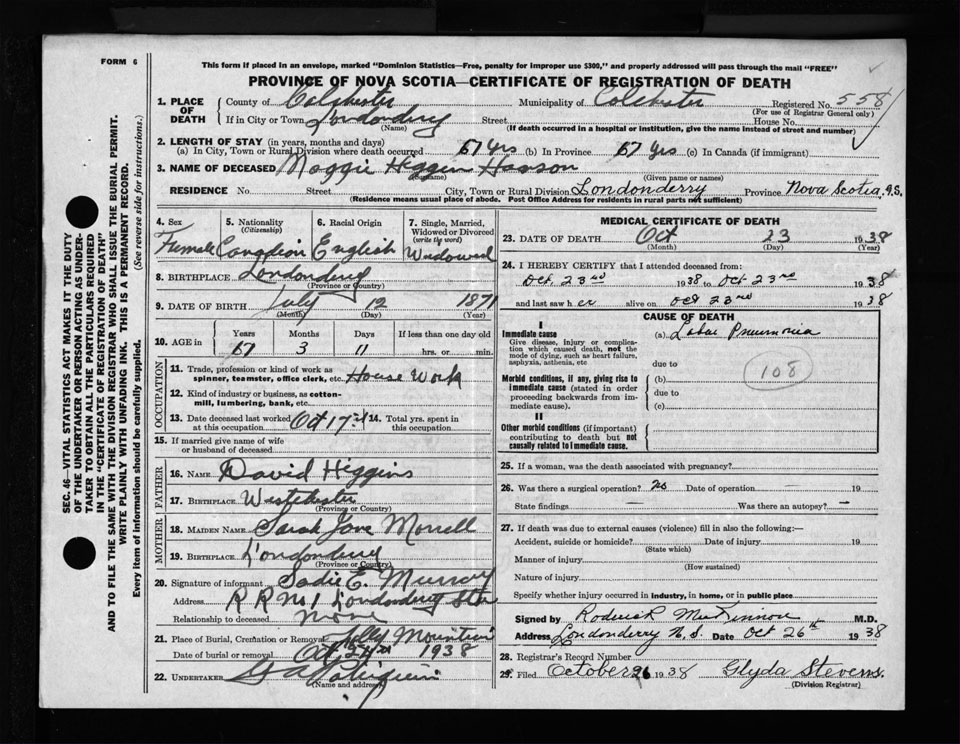 FORM 6
This form if placed in an envelope, marked "Dominion Statistics—Free, penalty for improper use $300," and properly addressed will pass through the mail "FREE"
PROVINCE OF NOVA SCOTIA—CERTIFICATE OF REGISTRATION OF DEATH
1. PLACE OF DEATH
County of Colchester Municipality of Colchester Registered No. 558
(For use of Registrar General only)
If in City or Town Londonderry Street House No.
(Name) (If death occurred in a hospital or institution, give the name instead of street and number)
2. LENGTH OF STAY (in years, months and days)
(a) In City, Town or Rural Division where death occurred 67 yrs (b) In Province 67 yrs (c) In Canada (if immigrant)
3. NAME OF DECEASED Maggie Higgins Hanson
(Given name or names)
RESIDENCE No. Street City, Town or Rural Division Londonderry Province Nova Scotia
(Residence means usual place of abode. Post Office Address for residents in rural parts not sufficient)
SEC. 46—VITAL STATISTICS ACT MAKES IT THE DUTY
OF THE UNDERTAKER OR PERSON ACTING AS UNDER-
TAKER TO OBTAIN ALL THE PARTICULARS REQUIRED
IN THE "CERTIFICATE OF REGISTRATION OF DEATH"
AND TO FILE THE SAME WITH THE DIVISION REGISTRAR WHO SHALL ISSUE THE BURIAL PERMIT.
WRITE PLAINLY WITH UNFADING INK. THIS IS A PERMANENT RECORD.
Every item of information should be carefully supplied. (See reverse side for instructions.)
4. Sex 5. Nationality (Citizenship) 6. Racial Origin 7. Single, Married, Widowed or Divorced (write the word)
Female Canadian English Widowed
8. BIRTHPLACE Londonderry
(Province or Country)
9. DATE OF BIRTH July 12 1871
(Month) (Day) (Year)
10. AGE in Years Months Days If less than one day old
67 3 11 hrs. or min.
OCCUPATION
11. Trade, profession or kind of work as spinner, teamster, office clerk, etc. House Work
12. Kind of industry or business, as cotton-mill, lumbering, bank, etc.
13. Date deceased last worked at this occupation Oct 17 14. Total yrs. spent in this occupation
15. If married give name of wife or husband of deceased
FATHER
16. NAME David Higgins
17. BIRTHPLACE Westchester
(Province or Country)
MOTHER
18. MAIDEN NAME Sarah Jane Morrell
19. BIRTHPLACE Londonderry
(Province or Country)
20. Signature of informant Sadie E. Murray
Address R R No 1 Londonderry Sta
Relationship to deceased None
21. Place of Burial, Cremation or Removal Folly Mountain
Date of burial or removal Oct 1938
22. UNDERTAKER
(Name and address)
MEDICAL CERTIFICATE OF DEATH
23. DATE OF DEATH Oct 23 1938
(Month) (Day) (Year)
24. I HEREBY CERTIFY that I attended deceased from:
Oct 23rd 1938 to Oct 23rd 1938
and last saw her alive on Oct 23rd 1938
CAUSE OF DEATH
I
Immediate cause (a) Lobar Pneumonia
Give disease, injury or complication which caused death, not the mode of dying, such as heart failure, asphyxia, asthenia, etc
due to
Morbid conditions, if any, giving rise to immediate cause (stated in order proceeding backwards from immediate). (b)
108
due to
(c)
II
Other morbid conditions (if important) contributing to death but not causally related to immediate cause.
25. If a woman, was the death associated with pregnancy?
26. Was there a surgical operation? No Date of operation — 19 —
State findings — Was there an autopsy? —
27. If death was due to external causes (violence) fill in also the following:—
Accident, suicide or homicide? Date of injury 19
(State which)
Manner of injury
(How sustained)
Nature of injury
Specify whether injury occurred in industry, in home, or in public place
Signed by Roderick McKinnon M.D.
Address Londonderry N.S. Date Oct 26th 1938
28. Registrar's Record Number
29. Filed October 26 1938 Glyda Stevens
(Division Registrar)